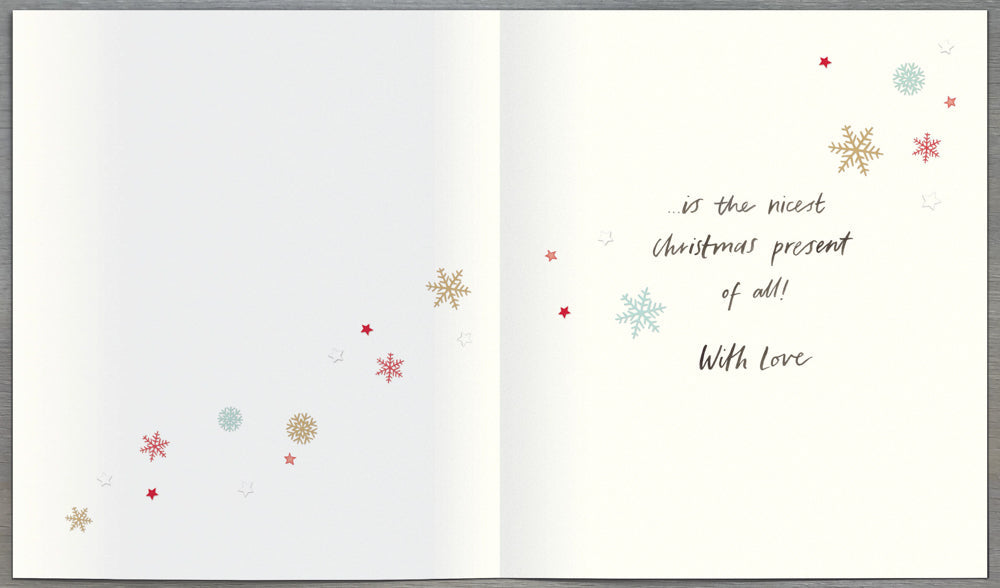 ...is the nicest
Christmas present
of all!
With Love